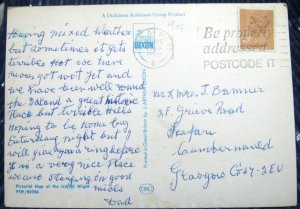 A Dickinson Robinson Group Product
Having mixed weather
but sometimes it gets
terrible Hot we have
never got wet yet and
we have been well round
the Island a great historic
Place but terrible Hills
Hoping to be home by
Saturdays night but I
will give you a ring before
It is a very nice place
we are staying in good
meals
Dad
Pictorial Map of the Isle of Wight
DIXON
Printed in Great Britain by J. ARTHUR DIXON
DRG
Be properly
addressed
POSTCODE IT
Mr & Mrs J. Brannier
Grove Road
Safari
Cumbernauld
Glasgow G67-2EU